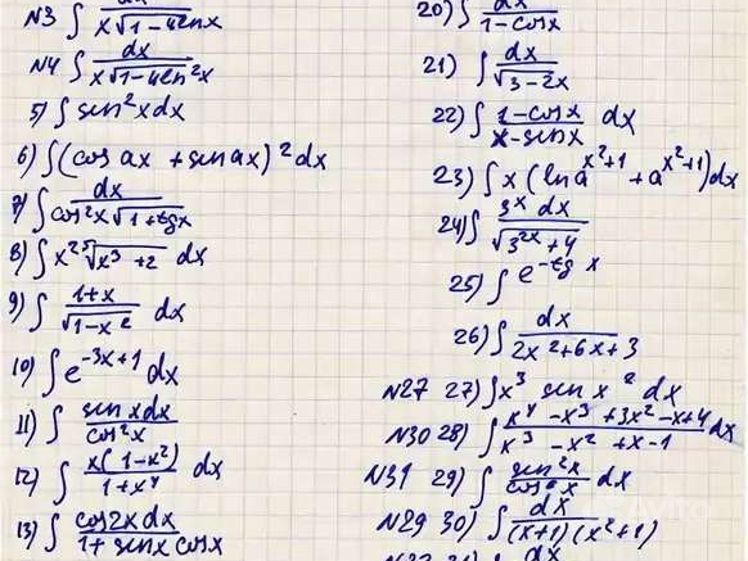 N3 ∫ dx / (x√(1-4lnx))
N4 ∫ dx / (x√(1-4ln²x))
5) ∫ sin²x dx
6) ∫ (cos ax + sin ax)² dx
7) ∫ dx / (cos²x √(1+tgx))
8) ∫ x² ⁵√(x³+2) dx
9) ∫ (1+x) / √(1-x²) dx
10) ∫ e^(-3x+1) dx
11) ∫ sin x dx / cos²x
12) ∫ x(1-x²) / (1+x⁴) dx
13) ∫ cos2x dx / (1+sinx cosx)
20) ∫ dx / (1-cosx)
21) ∫ dx / √(3-2x)
22) ∫ (1-cosx) / (x-sinx) dx
23) ∫ x (ln a^(x²+1) + a^(x²+1)) dx
24) ∫ 3^x dx / √(3^(2x)+4)
25) ∫ e^(-tg x)
26) ∫ dx / (2x²+6x+3)
N27 27) ∫ x³ sin x² dx
N30 28) ∫ (x⁴-x³+3x²-x+4) / (x³-x²+x-1) dx
N31 29) ∫ sin²x / cos x dx
N29 30) ∫ dx / ((x+1)(x²+1))
dx
Avito